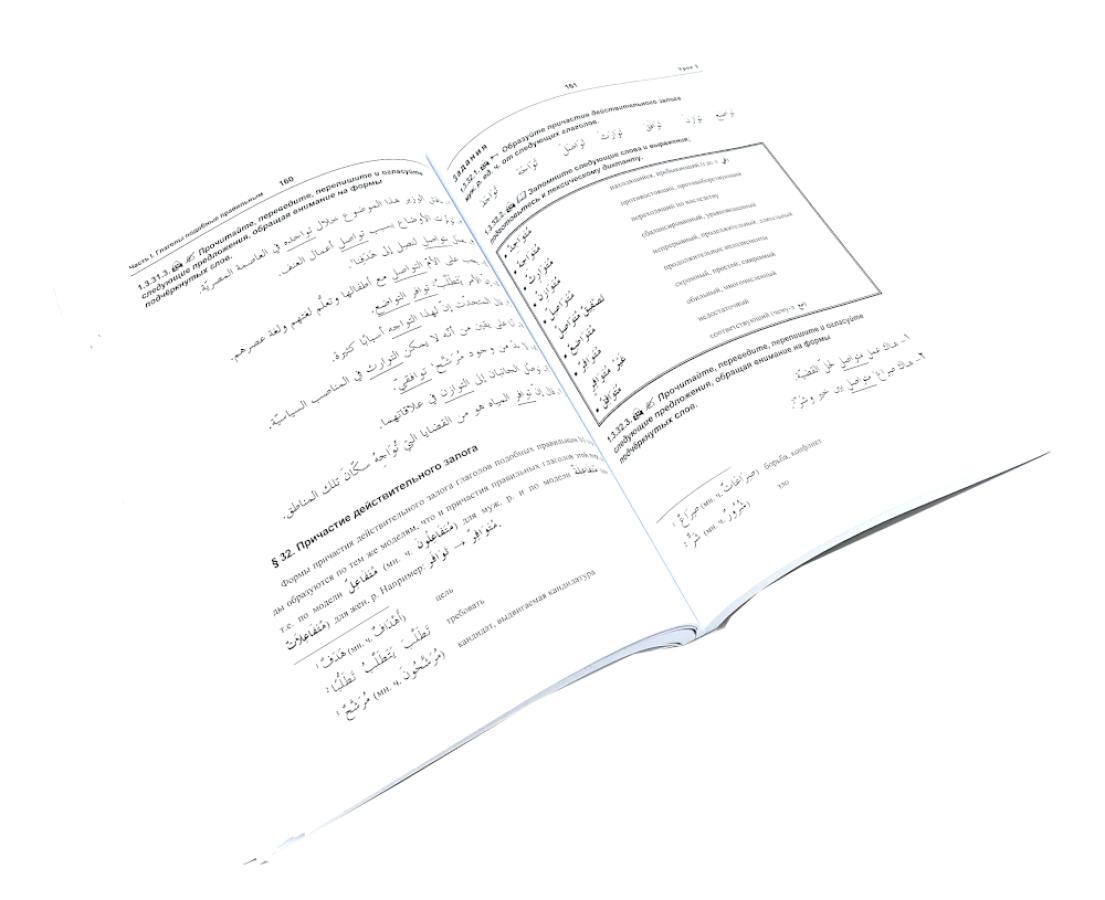 Часть I. Глаголы подобные правильным 160
1.3.31.3. Прочитайте, переведите, перепишите и огласуйте
следующие предложения, обращая внимание на формы
подчёркнутых слов.
هذا الموضوع خلال تواجده في العاصمة المصريّة.
توتّرت الأوضاع بسبب تواصل أعمال العنف.
تواصل لنصل إلى هدفنا¹.
على الأمّ التواصل مع أطفالها وتعلّم لغتهم ولغة عصرهم.
الأمر يتطلّب² توافر التواضع.
قال المتحدّث إنّ لهذا التواجه أسبابًا كثيرة.
على يقين من أنّه لا يمكن التوارث في المناصب السياسيّة.
لا بدّ من وجود مُرَشَّح³ توافقيّ.
توصّل الجانبان إلى التوازن في علاقاتهما.
قال إنّ توافر المياه هو من القضايا التي تُوَاجِهُ سكّان تلك المناطق.
§ 32. Причастие действительного залога
Формы причастия действительного залога глаголов подобных правильным VI
ды образуются по тем же моделям, что и причастия правильных глаголов этой
т.е. по модели مُتَفَاعِلٌ (мн. ч. مُتَفَاعِلُونَ) для муж. р. и по модели مُتَفَاعِلَةٌ
(مُتَفَاعِلَاتٌ) для жен. р. Например: تَوَافَرَ → مُتَوَافِرٌ.
¹ هَدَفٌ (мн. ч. أَهْدَافٌ) цель
² تَطَلَّبَ يَتَطَلَّبُ تَطَلُّبًا требовать
³ مُرَشَّحٌ (мн. ч. مُرَشَّحُونَ) кандидат, выдвигаемая кандидатура
161 Урок 3
Задания
1.3.32.1. Образуйте причастие действительного залога
муж. р. ед. ч. от следующих глаголов.
تَوَاجَدَ تَوَاجَهَ تَوَاصَلَ تَوَارَثَ
1.3.32.2. Запомните следующие слова и выражения;
подготовьтесь к лексическому диктанту.
• مُتَوَاجِدٌ находящийся, пребывающий (где-л. في)
• مُتَوَاجِهٌ противостоящий, противоборствующий
• مُتَوَارِثٌ переходящий по наследству
• مُتَوَازِنٌ сбалансированный, уравновешенный
• مُتَوَاصِلٌ непрерывный, продолжительный, длительный
تَصْفِيقٌ مُتَوَاصِلٌ продолжительные аплодисменты
• مُتَوَاضِعٌ скромный, простой, смиренный
• مُتَوَافِرٌ обильный, многочисленный
غَيْرُ مُتَوَافِرٍ недостаточный
• مُتَوَافِقٌ соответствующий (чему-л. مع)
1.3.32.3. Прочитайте, переведите, перепишите и огласуйте
следующие предложения, обращая внимание на формы
подчёркнутых слов.
١– هناك عمل متواصل لحلّ القضيّة.
٢– هناك صراع¹ متواصل بين خير وشرّ².
¹ صِرَاعٌ (мн. ч. صِرَاعَاتٌ) борьба, конфликт
² شَرٌّ (мн. ч. شُرُورٌ) зло